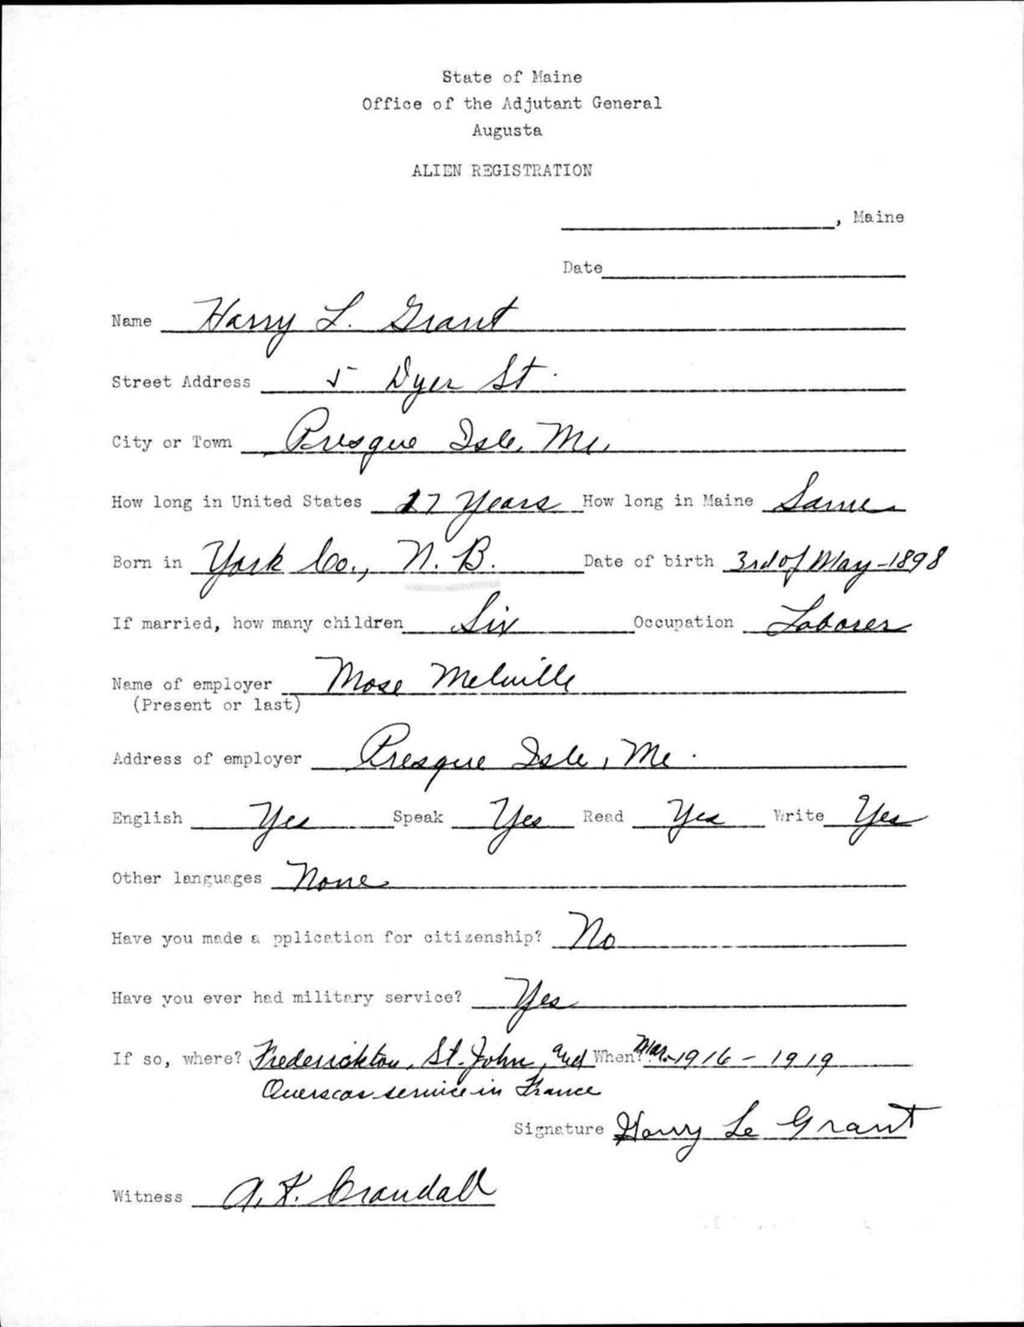 State of Maine
Office of the Adjutant General
Augusta
ALIEN REGISTRATION
, Maine
Date
Name Harry L. Grant
Street Address 5 Dyer St.
City or Town Presque Isle, Me.
How long in United States 17 Years How long in Maine Same
Born in York Co., N. B. Date of birth 3rd of May - 1898
If married, how many children Six Occupation Laborer
Name of employer Mose Melville
(Present or last)
Address of employer Presque Isle, Me.
English Yes Speak Yes Read Yes Write Yes
Other languages None
Have you made a pplication for citizenship? No
Have you ever had military service? Yes
If so, where? Frederickton, St. John, and When? Mar. - 1916 - 1919
Overseas service in France
Signature Harry Le Grant
Witness A. F. Crandall